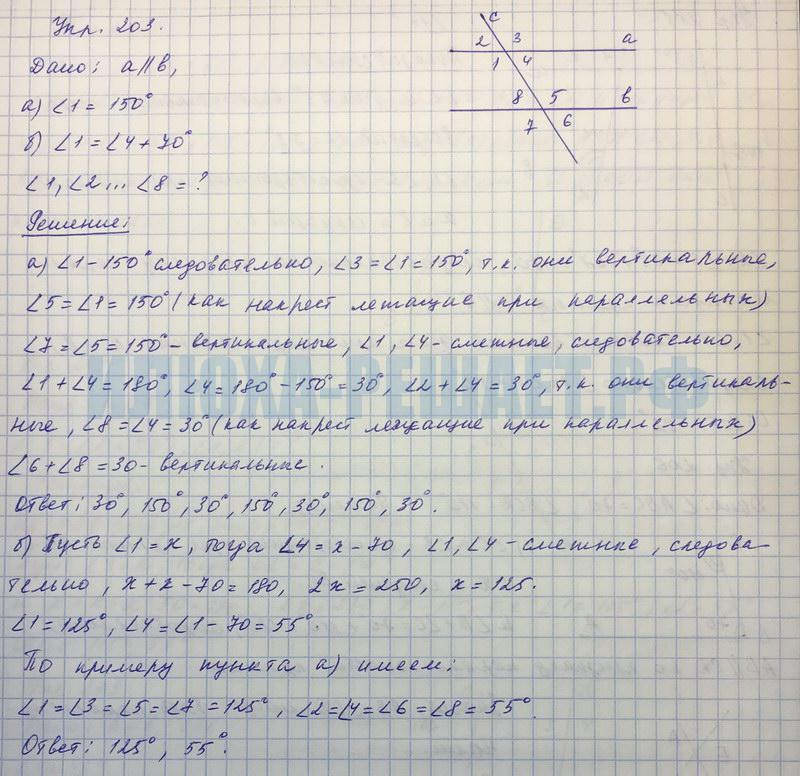 Упр. 203.
Дано: a∥b,
а) ∠1 = 150°
б) ∠1 = ∠4 + 70°
∠1, ∠2 ... ∠8 = ?
Решение:
c
2 3 a
1 4
8 5 b
7 6
а) ∠1 - 150° следовательно, ∠3 = ∠1 = 150°, т.к. они вертикальные,
∠5 = ∠1 = 150° (как накрест лежащие при параллельных)
∠7 = ∠5 = 150° - вертикальные, ∠1, ∠4 - смежные, следовательно,
∠1 + ∠4 = 180°, ∠4 = 180° - 150° = 30°, ∠2 + ∠4 = 30°, т.к. они вертикаль-
ные, ∠8 = ∠4 = 30° (как накрест лежащие при параллельных)
∠6 + ∠8 = 30 - вертикальные.
Ответ: 30°, 150°, 30°, 150°, 30°, 150°, 30°.
б) Пусть ∠1 = x, тогда ∠4 = x - 70, ∠1, ∠4 - смежные, следова-
тельно, x + x - 70 = 180, 2x = 250, x = 125.
∠1 = 125°, ∠4 = ∠1 - 70 = 55°.
По примеру пункта а) имеем:
∠1 = ∠3 = ∠5 = ∠7 = 125°, ∠2 = ∠4 = ∠6 = ∠8 = 55°.
Ответ: 125°, 55°.